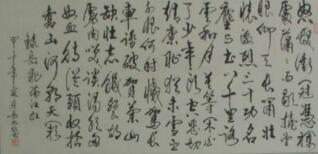 怒髮衝冠憑欄
處瀟瀟雨歇抬望
眼仰天長嘯壯
懷激烈三十功名
塵与土八千里路
雲和月莫等閒白
了少年頭空悲切
靖康恥猶未雪臣
子恨何時滅駕長
車踏破賀蘭山
缺壯志飢餐胡
虜肉笑談渴飲匈
奴血待從頭收拾
舊山河朝天闕
錄岳飛滿江紅